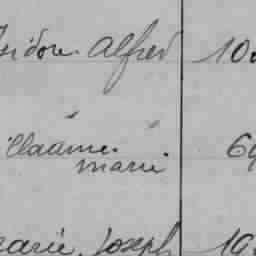 Isidore Alfred 10
illaume.
marie. 69
Marie, Joseph 10